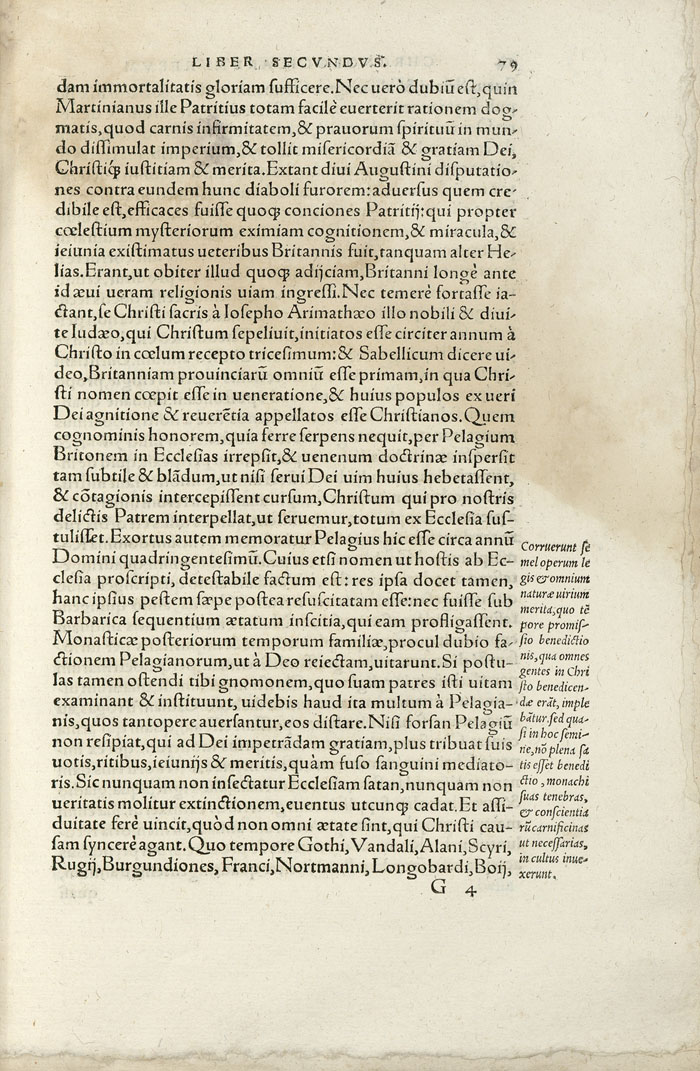 LIBER SECVNDVS. 79
dam immortalitatis gloriam ſufficere. Nec uerò dubiũ eſt, quin
Martinianus ille Patritius totam facilè euerterit rationem dog-
matis, quod carnis infirmitatem, & prauorum ſpirituũ in mun-
do diſſimulat imperium, & tollit miſericordiã & gratiam Dei,
Chriſtiq́ꝫ iuſtitiam & merita. Extant diui Auguſtini diſputatio-
nes contra eundem hunc diaboli furorem: aduerſus quem cre-
dibile eſt, efficaces fuiſſe quoqꝫ conciones Patritij: qui propter
cœleſtium myſteriorum eximiam cognitionem, & miracula, &
ieiunia exiſtimatus ueteribus Britannis fuit, tanquam alter He-
lias. Erant, ut obiter illud quoqꝫ adijciam, Britanni longè ante
id æui ueram religionis uiam ingreſſi. Nec temerè fortaſſe ia-
ctant, ſe Chriſti ſacris à Ioſepho Arimathæo illo nobili & diui-
te Iudæo, qui Chriſtum ſepeliuit, initiatos eſſe circiter annum à
Chriſto in cœlum recepto triceſimum: & Sabellicum dicere ui-
deo, Britanniam prouinciarũ omniũ eſſe primam, in qua Chri-
ſti nomen cœpit eſſe in ueneratione, & huius populos ex ueri
Dei agnitione & reuerẽtia appellatos eſſe Chriſtianos. Quem
cognominis honorem, quia ferre ſerpens nequit, per Pelagium
Britonem in Eccleſias irrepſit, & uenenum doctrinæ inſperſit
tam ſubtile & blãdum, ut niſi ſerui Dei uim huius hebetaſſent,
& cõtagionis intercepiſſent curſum, Chriſtum qui pro noſtris
delictis Patrem interpellat, ut ſeruemur, totum ex Eccleſia ſuſ-
tuliſſet. Exortus autem memoratur Pelagius hic eſſe circa annũ
Domini quadringenteſimũ. Cuius etſi nomen ut hoſtis ab Ec-
cleſia proſcripti, deteſtabile factum eſt: res ipſa docet tamen,
hanc ipſius peſtem ſæpe poſtea reſuſcitatam eſſe: nec fuiſſe ſub
Barbarica ſequentium ætatum inſcitia, qui eam profligaſſent.
Monaſticæ poſteriorum temporum familiæ, procul dubio fa-
ctionem Pelagianorum, ut à Deo reiectam, uitarunt. Si poſtu-
las tamen oſtendi tibi gnomonem, quo ſuam patres iſti uitam
examinant & inſtituunt, uidebis haud ita multum à Pelagia-
nis, quos tantopere auerſantur, eos diſtare. Niſi forſan Pelagiũ
non reſipiat, qui ad Dei impetrãdam gratiam, plus tribuat ſuis
uotis, ritibus, ieiunijs & meritis, quàm fuſo ſanguini mediato-
ris. Sic nunquam non inſectatur Eccleſiam ſatan, nunquam non
ueritatis molitur extinctionem, euentus utcunqꝫ cadat. Et aſſi-
duitate ferè uincit, quòd non omni ætate ſint, qui Chriſti cau-
ſam ſyncerè agant. Quo tempore Gothi, Vandali, Alani, Scyri,
Rugij, Burgundiones, Franci, Nortmanni, Longobardi, Boij,
G 4
Corruerunt ſe
mel operum le
gis & omnium
naturæ uirium
merita, quo tẽ
pore promiſ-
ſio benedictio
nis, qua omnes
gentes in Chri
ſto benedicen-
dæ erãt, imple
bãtur. ſed qua-
ſi in hoc ſemi-
ne, nõ plena ſa
tis eſſet benedi
ctio, monachi
ſuas tenebras,
& conſcientia
rũ carnificinas
ut neceſſarias,
in cultus inue-
xerunt.